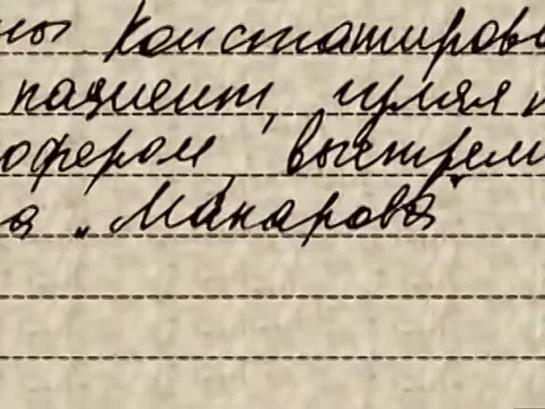 ны констатирова
пациент, гулял
офером, выстрели
а „Макарова"